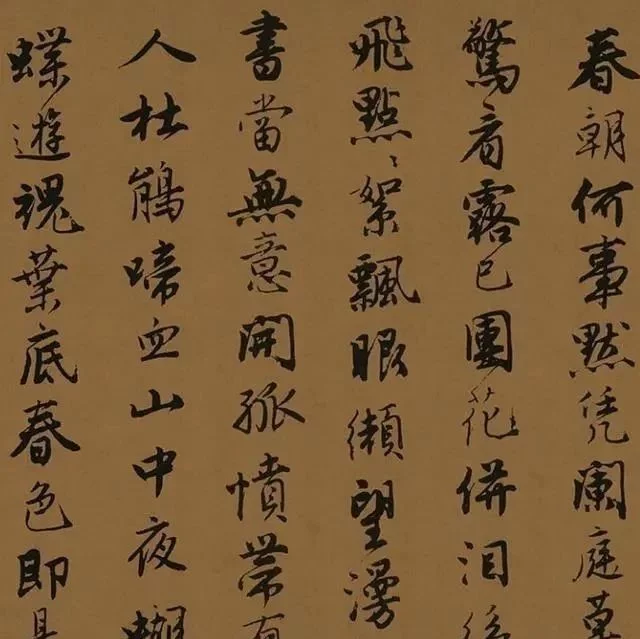 春朝何事默凭闌庭草
驚看露已團花併泪絲
飛點〻絮飄眼纈望漫
書當無意開孤憤帶有
人杜鵑啼血山中夜蝴
蝶遊魂葉底春色即